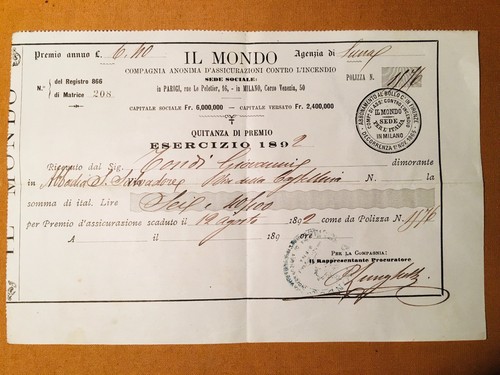 Premio annuo £ 6.40
IL MONDO
Agenzia di
COMPAGNIA ANONIMA D'ASSICURAZIONI CONTRO L'INCENDIO
SEDE SOCIALE:
in PARIGI, rue Le Peletier, 16, - in MILANO, Corso Venezia, 50
POLIZZA N. 1176
N.° del Registro 866
di Matrice 208
CAPITALE SOCIALE Fr. 6,000,000 — CAPITALE VERSATO Fr. 2,400,000
ABBONAMENTO AL BOLLO C.° IN FIRENZE
IL MONDO
SEDE
PER L'ITALIA
IN MILANO
QUITANZA DI PREMIO
ESERCIZIO 1892
IL MONDO
Ricevuto dal Sig. Giovanni dimorante
in Abbadia S. Salvadore N. la
somma di ital. Lire Sei = 40/100
per Premio d'assicurazione scaduto il 12 agosto 1892 come da Polizza N. 1176
A il 189 ore
PER LA COMPAGNIA:
Il Rappresentante Procuratore